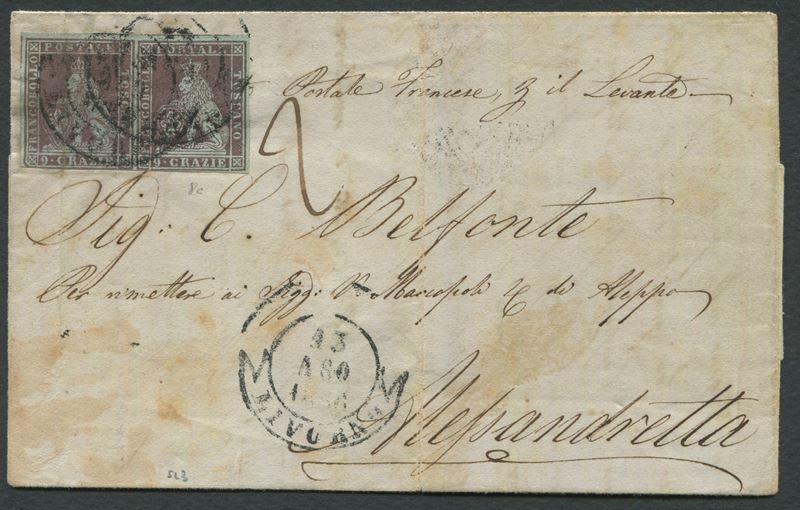 FRANCOBOLLO POSTALE TOSCANO 9·CRAZIE
FRANCOBOLLO POSTALE TOSCANO 9·CRAZIE
Postale Francese, p il Levante
2
8c
Sig: C. Belfonte
Per rimettere ai Sigg: V. Marcopoli & di Aleppo
13
AGO
1856
LIVORNO
Alessandretta
523